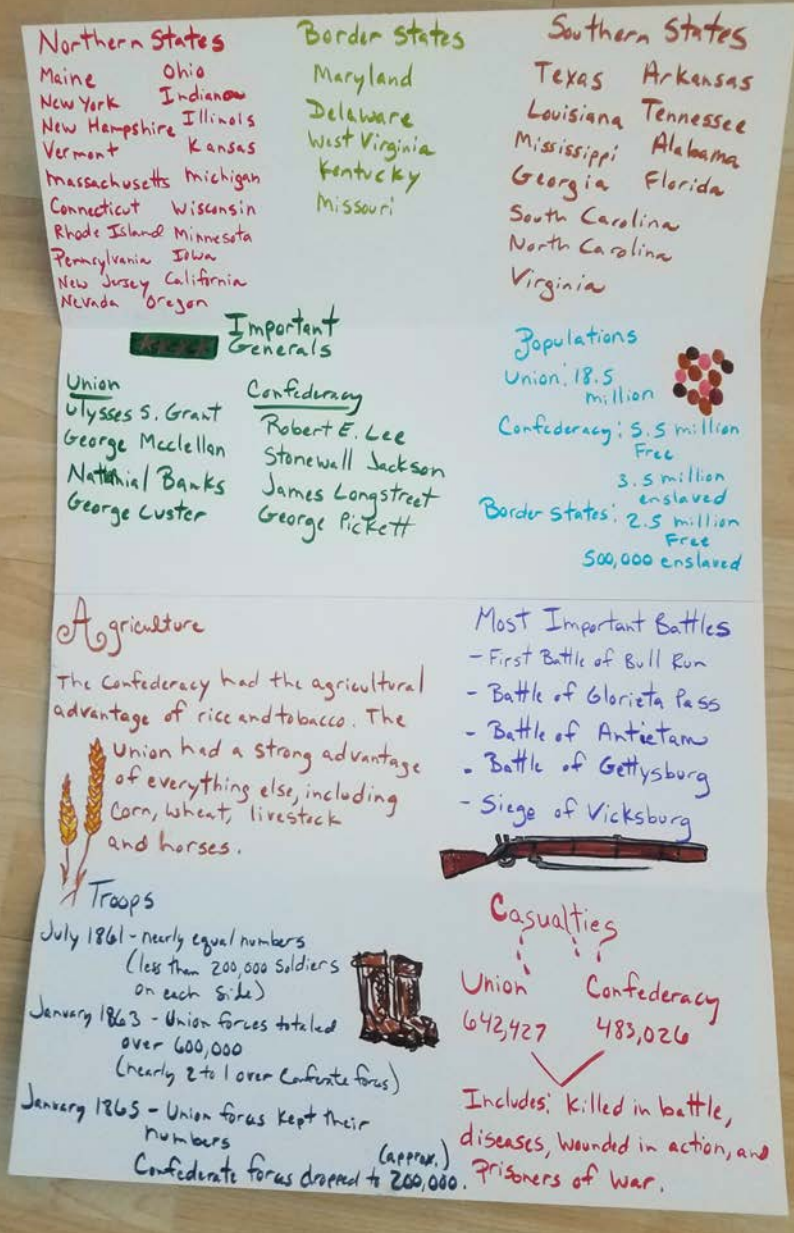 Northern States
Maine Ohio
New York Indiana
New Hampshire Illinois
Vermont Kansas
Massachusetts Michigan
Connecticut Wisconsin
Rhode Island Minnesota
Pennsylvania Iowa
New Jersey California
Nevada Oregon
Border States
Maryland
Delaware
West Virginia
Kentucky
Missouri
Southern States
Texas Arkansas
Louisiana Tennessee
Mississippi Alabama
Georgia Florida
South Carolina
North Carolina
Virginia
Important
Generals
Union
Ulysses S. Grant
George Mcclellan
Nathanial Banks
George Custer
Confederacy
Robert E. Lee
Stonewall Jackson
James Longstreet
George Pickett
Populations
Union: 18.5
million
Confederacy: 5.5 million
Free
3.5 million
enslaved
Border States: 2.5 million
Free
500,000 enslaved
Agriculture
The Confederacy had the agricultural
advantage of rice and tobacco. The
Union had a strong advantage
of everything else, including
Corn, wheat, livestock
and horses.
Most Important Battles
- First Battle of Bull Run
- Battle of Glorieta Pass
- Battle of Antietam
- Battle of Gettysburg
- Siege of Vicksburg
Troops
July 1861 - nearly equal numbers
(less than 200,000 Soldiers
on each side)
January 1863 - Union forces totaled
over 600,000
(nearly 2 to 1 over Conferate forces)
January 1865 - Union forces kept their
numbers
(approx.)
Confederate forces dropped to 200,000.
Casualties
Union Confederacy
642,427 483,026
Includes: Killed in battle,
diseases, wounded in action, and
Prisoners of War.